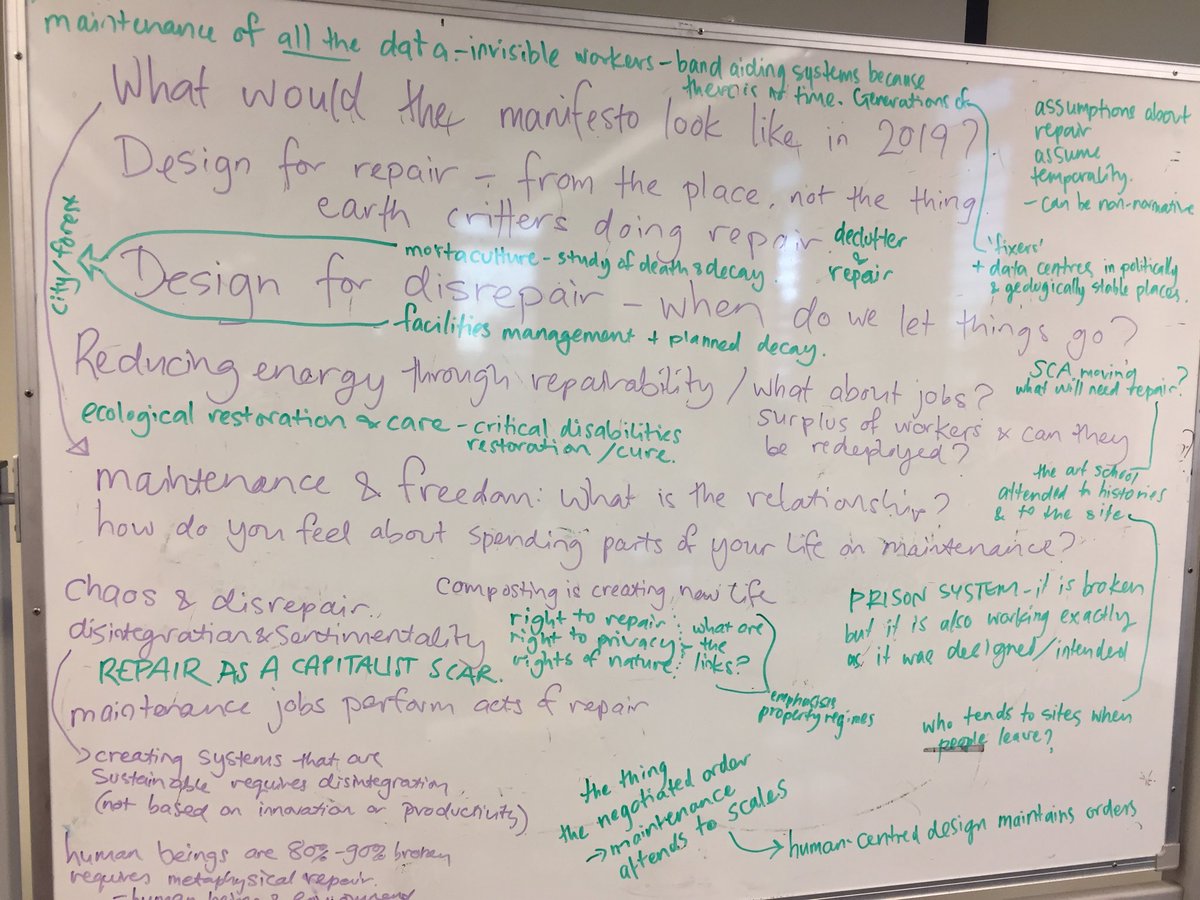 maintenance of all the data - invisible workers - band aiding systems because
there is no time. Generations of
What would the manifesto look like in 2019?
assumptions about
repair
assume
temporality.
- can be non-normative
Design for repair - from the place, not the thing
earth critters doing repair
declutter
&
repair
'fixers'
+ data centres in politically
& geologically stable places.
city/forest
mortaculture - study of death & decay
Design for disrepair - when do we let things go?
facilities management + planned decay.
Reducing energy through repairability / what about jobs?
surplus of workers & can they
be redeployed?
SCA moving
what will need repair?
ecological restoration & care - critical disabilities
restoration / cure.
the art school
attended to histories
& to the site
maintenance & freedom: what is the relationship?
how do you feel about spending parts of your life on maintenance?
chaos & disrepair
composting is creating new life
disintegration & sentimentality
right to repair
right to privacy
rights of nature
what are
the
links?
emphasises
property regimes
PRISON SYSTEM - it is broken
but it is also working exactly
as it was designed/intended
REPAIR AS A CAPITALIST SCAR.
maintenance jobs perform acts of repair
who tends to sites when
people leave?
creating systems that are
sustainable requires disintegration
(not based on innovation or productivity)
the thing
the negotiated order
→ maintenance
attends to scales
human-centred design maintains orders
human beings are 80%-90% broken
requires metaphysical repair.
- human being & environment